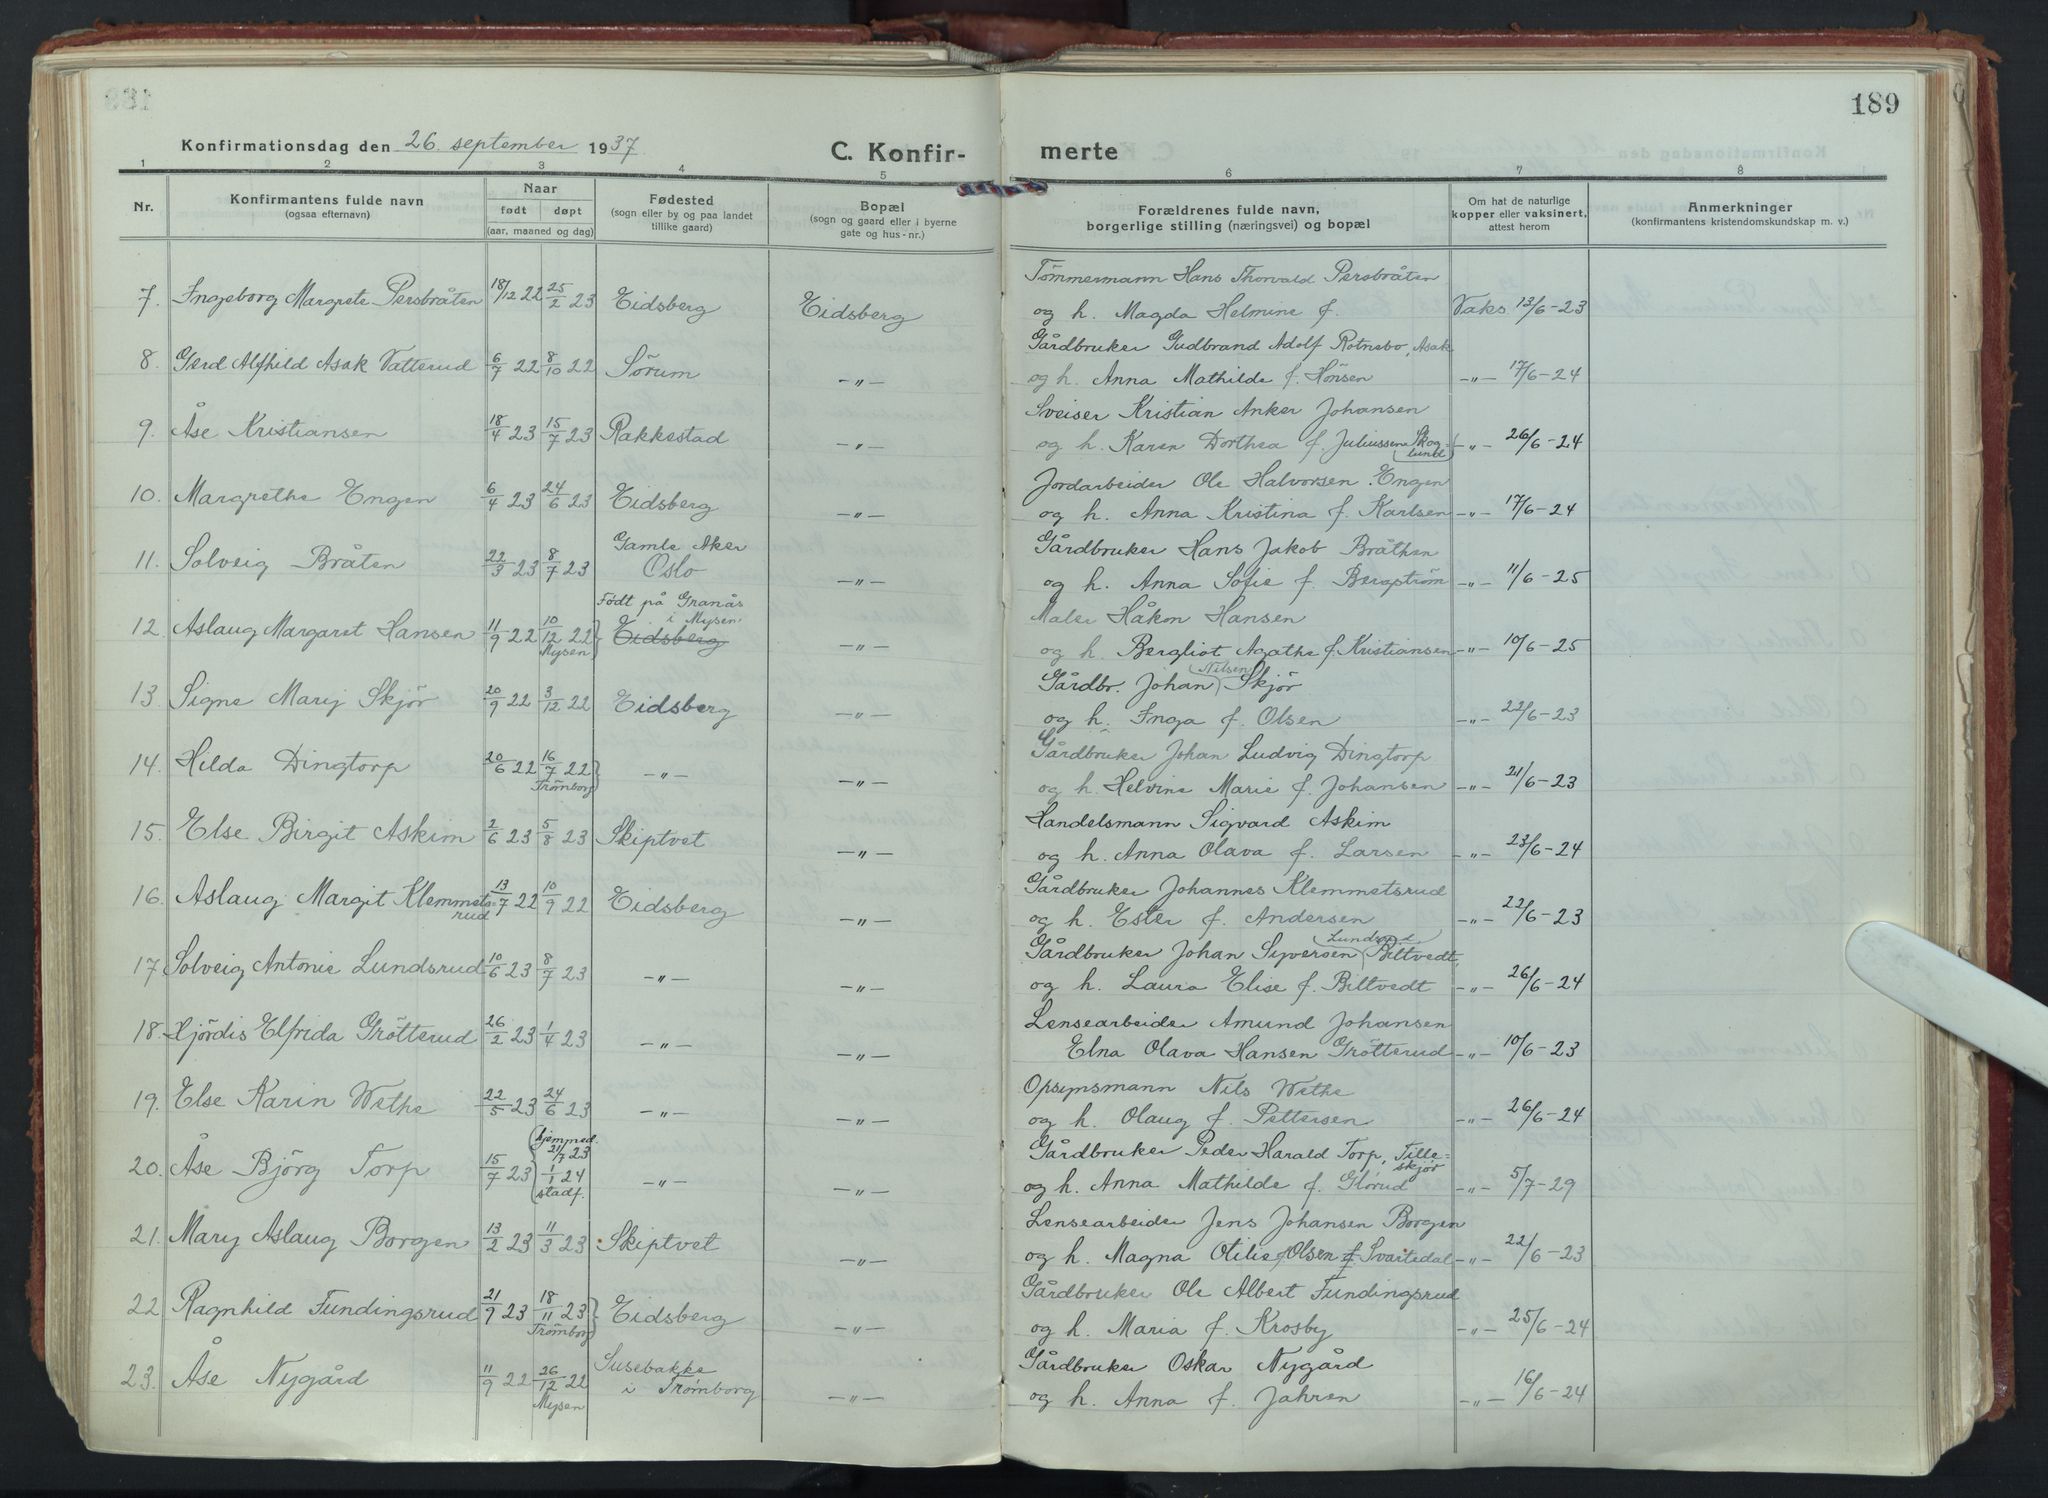 189
Konfirmationsdag den 26. september 1937
C. Konfir- merte
1 2 3 4 5 6 7 8
Nr.
Konfirmantens fulde navn
(ogsaa efternavn)
Naar
født døpt
(aar, maaned og dag)
Fødested
(sogn eller by og paa landet
tillike gaard)
Bopæl
(sogn og gaard eller i byerne
gate og hus-nr.)
Forældrenes fulde navn,
borgerlige stilling (næringsvei) og bopæl
Om hat de naturlige
kopper eller vaksinert,
attest herom
Anmerkninger
(konfirmantens kristendomskundskap m. v.)
Tömmermann Hans Thorvald Persbråten
7. Ingeborg Margrete Persbråten 18/12 22 25/2 23 Eidsberg Eidsberg og h. Magda Helmine f. Vaks. 13/6-23
Gårdbruker Gudbrand Adolf Rotnebo, Asak
8. Gerd Alfhild Asak Vatterud 6/7 22 8/10 22 Sørum -"- og h. Anna Mathilde f. Hönsen -"- 17/6-24
Sveiser Kristian Anker Johansen
9. Åse Kristiansen 18/4 23 15/7 23 Rakkestad -"- og h. Karen Dorthea f. Juliussen (Skoglund) -"- 26/6-24
Jordarbeider Ole Halvorsen Engen
10. Margrethe Engen 6/4 23 24/6 23 Eidsberg -"- og h. Anna Kristina f. Karlsen -"- 17/6-24
Gamle Aker Gårdbruker Hans Jakob Bråthen
11. Solveig Bråten 22/3 23 8/7 23 Oslo -"- og h. Anna Sofie f. Bergström -"- 11/6-25
Født på Granås i Mysen Maler Håkon Hansen
12. Aslaug Margaret Hansen 11/9 22 10/12 22 Mysen Eidsberg -"- og h. Bergliot Agathe f. Kristiansen -"- 10/6-25
Gårdbr. Johan (Nilsen) Skjör
13. Signe Mary Skjör 20/9 22 3/12 22 Eidsberg -"- og h. Inga f. Olsen -"- 22/6-23
Gårdbruker Johan Ludvig Dingtorp
14. Hilda Dingtorp 20/6 22 16/7 22 Trömborg -"- -"- og h. Helvine Marie f. Johansen -"- 21/6-23
Handelsmann Sigvard Askim
15. Else Birgit Askim 2/6 23 5/8 23 Skiptvet -"- og h. Anna Olava f. Larsen -"- 23/6-24
Gårdbruker Johannes Klemmetsrud
16. Aslaug Margit Klemmets=rud 13/7 22 10/9 22 Eidsberg -"- og h. Ester f. Andersen -"- 22/6-23
Gårdbruker Johan Syversen (Lundsrud) Biltvedt,
17. Solveig Antonie Lundsrud 10/6 23 8/7 23 -"- -"- og h. Laura Elise f. Biltvedt -"- 26/6-24
Lensearbeider Amund Johansen
18. Hjördis Elfrida Grötterud 26/2 23 1/4 23 -"- -"- Elna Olava Hansen Grötterud -"- 10/6-23
Opsynsmann Nils Wethe
19. Else Karin Wethe 22/5 23 24/6 23 -"- -"- og h. Olaug f. Pettersen -"- 26/6-24
Gårdbruker Peder Harald Torp, Tille=skjör
20. Åse Björg Torp 15/7 23 hjemmed. 21/7 23 1/1 24 stadf. -"- -"- og h. Anna Mathilde f. Glörud -"- 5/7-29
Lensearbeider Jens Johansen Borgen
21. Mary Aslaug Borgen 13/2 23 11/3 23 Skiptvet -"- og h. Magna Otilie f Olsen f. Svartedal -"- 22/6-23
Gårdbruker Ole Albert Fundingsrud
22 Ragnhild Fundingsrud 21/9 23 18/11 23 Trömborg Eidsberg -"- og h. Maria f. Krosby -"- 25/6-24
Susebakke i Trömborg Gårdbruker Oskar Nygård
23. Åse Nygård 11/9 22 26/12 22 Mysen -"- og h. Anna f. Jahren -"- 16/6-24